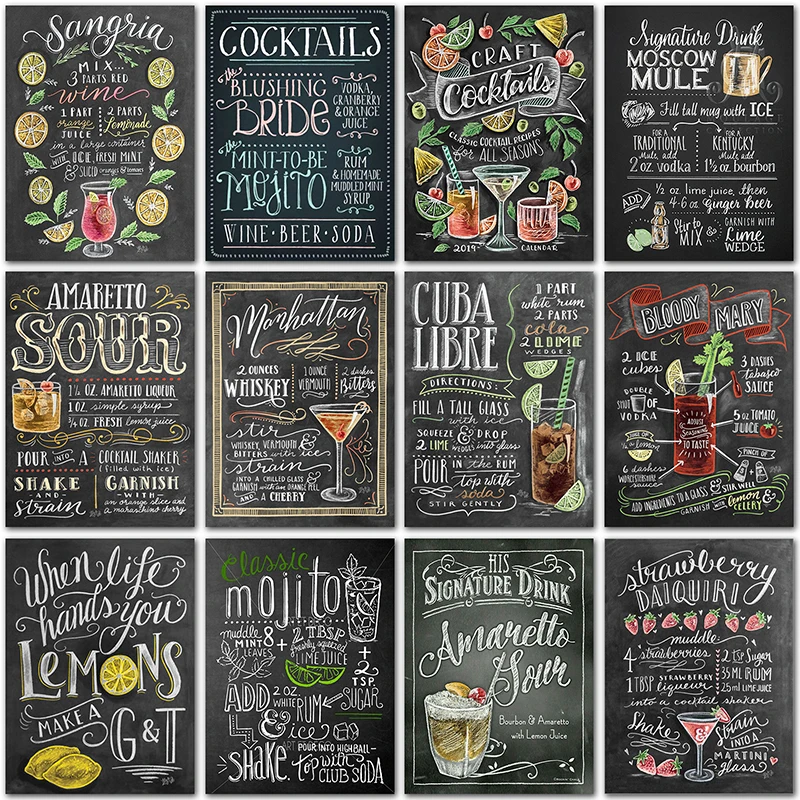 Sangria
MIX...
3 PARTS RED
wine
1 PART
orange
JUICE
2 PARTS
lemonade
in a large container
WITH ICE, FRESH MINT
& SLICED oranges & lemons
COCKTAILS
the BLUSHING
BRIDE
VODKA,
CRANBERRY
& ORANGE
JUICE
the MINT-TO-BE
Mojito
RUM
& HOMEMADE
MUDDLED MINT
SYRUP
WINE • BEER • SODA
CRAFT
Cocktails
CLASSIC COCKTAIL RECIPES
for ALL SEASONS
2019
CALENDAR
Signature Drink
MOSCOW
MULE
Fill tall mug with ICE
FOR A
TRADITIONAL
Mule, add
2 oz. vodka
FOR A
KENTUCKY
Mule, add
1½ oz. bourbon
ADD
½ oz. lime juice, then
4-6 oz Ginger beer
Stir to
MIX
&
GARNISH WITH
Lime
WEDGE
AMARETTO
SOUR
1½ OZ. AMARETTO LIQUEUR
1 OZ. simple syrup
¾ OZ. FRESH lemon juice
POUR INTO A COCKTAIL SHAKER
(filled with ice)
SHAKE
AND
Strain
GARNISH
WITH
an orange slice and
a maraschino cherry
Manhattan
2 OUNCES
WHISKEY
1 OUNCE
VERMOUTH
2 dashes
Bitters
stir
WHISKEY, VERMOUTH &
BITTERS with ice
strain
INTO A CHILLED GLASS &
GARNISH with an ORANGE PEEL
AND A CHERRY
CUBA
LIBRE
1 PART
white rum
2 PARTS
cola
2 LIME
WEDGES
DIRECTIONS:
FILL A TALL GLASS
with ice
SQUEEZE & DROP
2 LIME WEDGES into glass
POUR IN the RUM
top with
soda
STIR GENTLY
BLOODY MARY
2 ICE
cubes
DOUBLE
SHOT OF
VODKA
JUICE OF
¼ of a lemon
6 dashes
WORCESTERSHIRE
sauce
ADJUST
SEASONING
TO TASTE
3 DASHES
tabasco
SAUCE
5 OZ TOMATO
JUICE
PINCH OF
ADD INGREDIENTS TO A GLASS & STIR WELL
GARNISH WITH Lemon &
CELERY
When life
hands you
LEMONS
MAKE A
G&T
Classic
mojito
muddle
MINT 8
LEAVES
+
2 TBSP
freshly squeezed
LIME JUICE
+
2
TSP.
SUGAR
ADD 2 OZ
WHITE RUM
& ice
SHAKE.
POUR INTO HIGHBALL
top with
CLUB SODA
HIS
SIGNATURE DRINK
Amaretto
Sour
Bourbon & Amaretto
with Lemon Juice
strawberry
DAIQUIRI
muddle:
4 strawberries
1 TBSP STRAWBERRY
liqueur
2 tsp Sugar
35ml RUM
25ml LIME JUICE
into a cocktail shaker
Shake
&
Strain
INTO A
MARTINI
glass